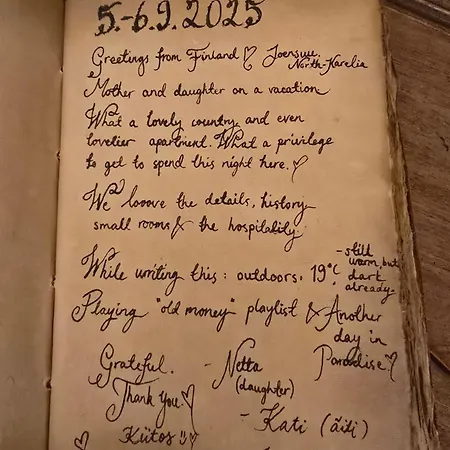 5.-6.9.2025
Greetings from Finland ♡ Joensuu,
North-Karelia
Mother and daughter on a vacation
What a lovely country and even
lovelier apartment. What a privilege
to get to spend this night here. ♡
We looove the details, history
small rooms & the hospitality.
While writing this: outdoors, 19°C
- still
warm, but
dark
already -
Playing "old money" playlist & Another
day in
Paradise ♡
Grateful.
Thank you ♡
Kiitos
- Netta
(daughter)
- Kati (äiti)